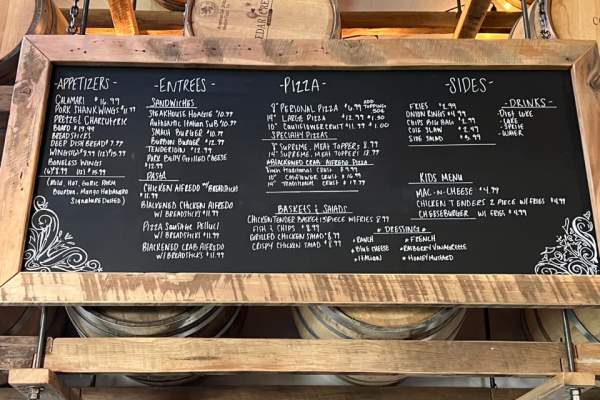 CEDAR CREEK
-APPETIZERS-
CALAMARI $16.99
PORK SHANK WINGS
PRETZEL CHARCUTERIE
BOARD $19.99
BREADSTICKS
DEEP DISH BREAD
BONELESS WINGS
(MILD, HOT, GARLIC PARM
BOURBON, MANGO HABANERO
SIGNATURE DUSTED)
-ENTREES-
SANDWICHES
STEAKHOUSE HOAGIE $10.99
AUTHENTIC ITALIAN SUB $10.99
SMASH BURGER $10.99
BOURBON BURGER $12.99
TENDERLOIN $12.99
PORK BELLY GRILLED CHEESE
$12.99
PASTA
CHICKEN ALFREDO W/BREADSTICKS
$11.99
BLACKENED CHICKEN ALFREDO
W/ BREADSTICKS $11.99
PIZZA SAUSAGE
W/ BREADSTICKS
$11.99
BLACKENED CRAB ALFREDO
W/ BREADSTICKS $11.99
-PIZZA-
8" PERSONAL PIZZA $6.99
ADD TOPPINGS
50¢
14" LARGE PIZZA $12.99 $1.50
10" CAULIFLOWER CRUST $11.99 $1.00
SPECIALTY PIZZAS
8" SUPREME, MEAT TOPPERS 8.99
14" SUPREME, MEAT TOPPERS
BLACKENED CRAB ALFREDO PIZZA
TRADITIONAL CRUST
10" CAULIFLOWER CRUST
14" TRADITIONAL CRUST $17.99
BASKETS & SALADS
CHICKEN TENDER BASKET 3 PIECE W/FRIES
FISH & CHIPS $8.99
GRILLED CHICKEN SALAD $8.99
CRISPY CHICKEN SALAD $8.99
-SIDES-
FRIES $2.99
ONION RINGS $4.99
CHIPS BIG BAG $2.99
COLE SLAW $2.49
SIDE SALAD $3.99
KIDS MENU
MAC-N-CHEESE $4.99
CHICKEN TENDERS 2 PIECE W/ FRIES $4.99
CHEESEBURGER W/ FRIES $4.99
* DRESSING *
* RANCH
* BLUE CHEESE
* ITALIAN
* FRENCH
* RASPBERRY VINAIGRETTE
* HONEY MUSTARD
-DRINKS-
-DIET COKE
-COKE
-SPRITE
-WATER